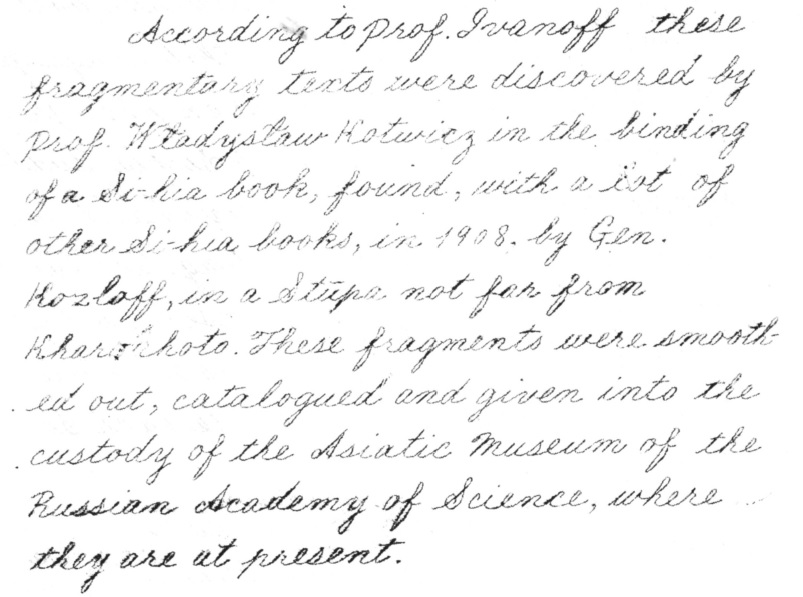 According to Prof. Ivanoff these
fragmentary texts were discovered by
Prof. Władysław Kotwicz in the binding
of a Si-hia book, found, with a lot of
other Si-hia books, in 1908. by Gen.
Kozloff, in a Stūpa not far from
Khara-khoto. These fragments were smooth-
ed out, catalogued and given into the
custody of the Asiatic Museum of the
Russian Academy of Science, where
they are at present.